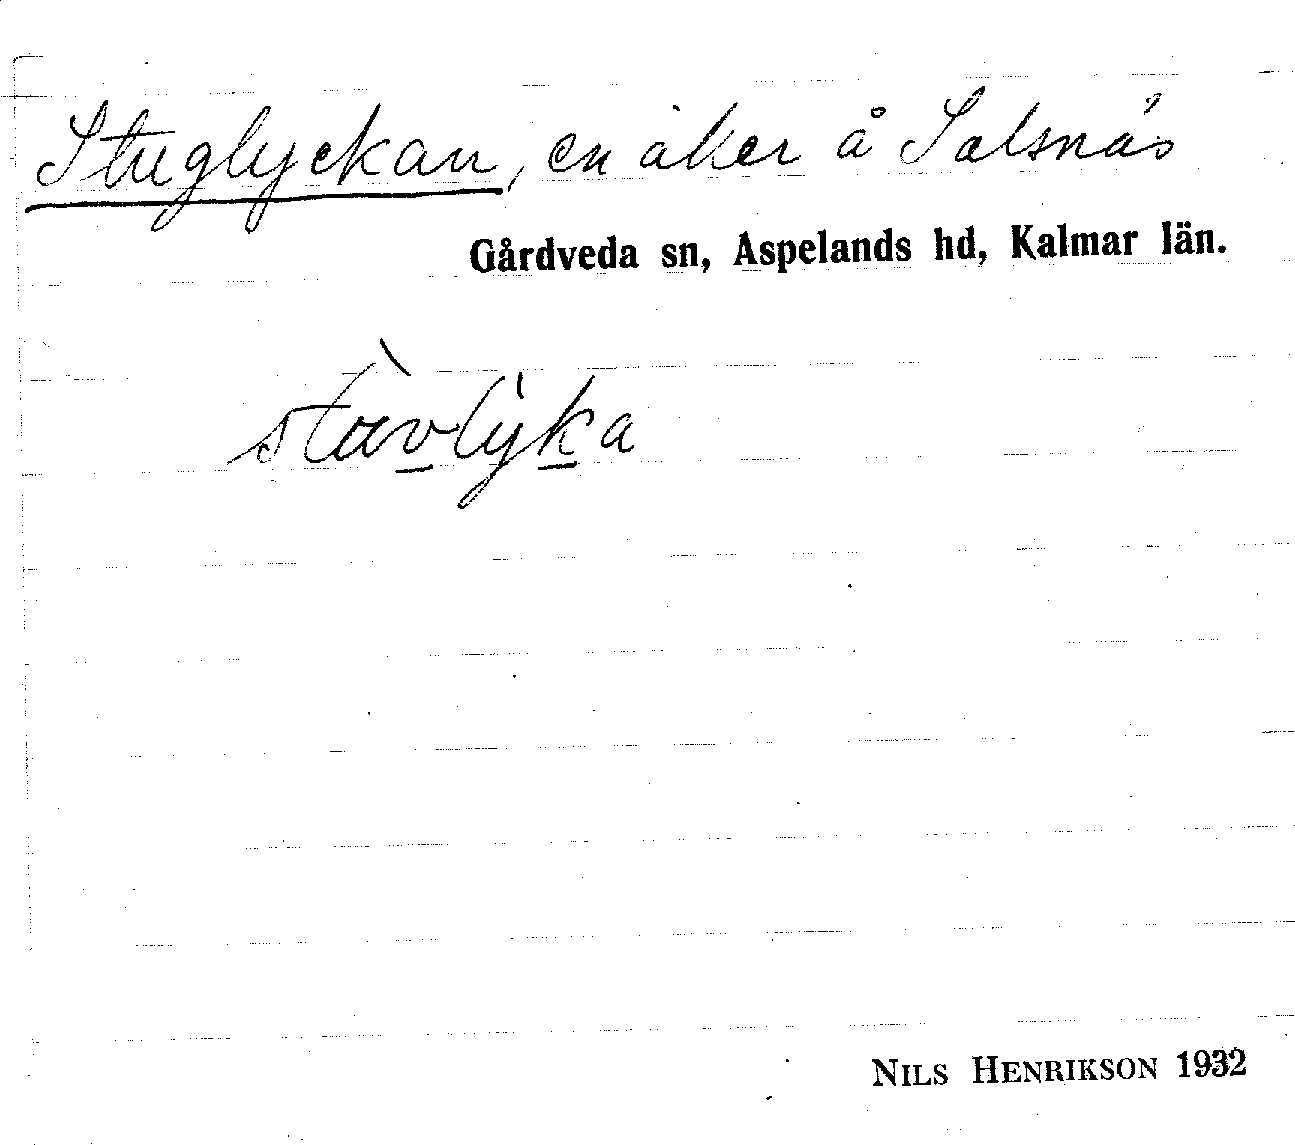 Stuglyckan, en åker å Salsnäs
Gårdveda sn, Aspelands hd, Kalmar län.
NILS HENRIKSON 1932